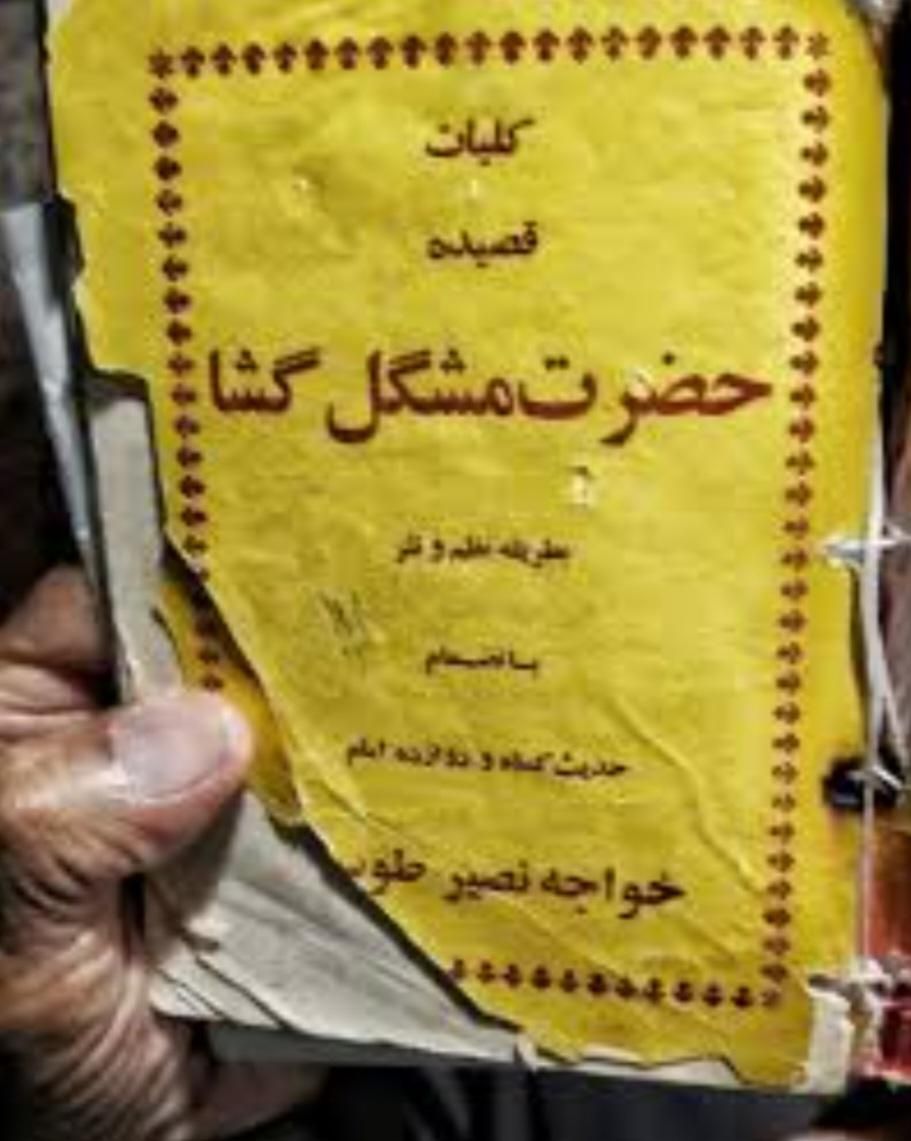 کلیات
قصیده
حضرت مشگل گشا
بطریقه نظم و نثر
با انضمام
حدیث کساء و دوازده امام
خواجه نصیر طوس